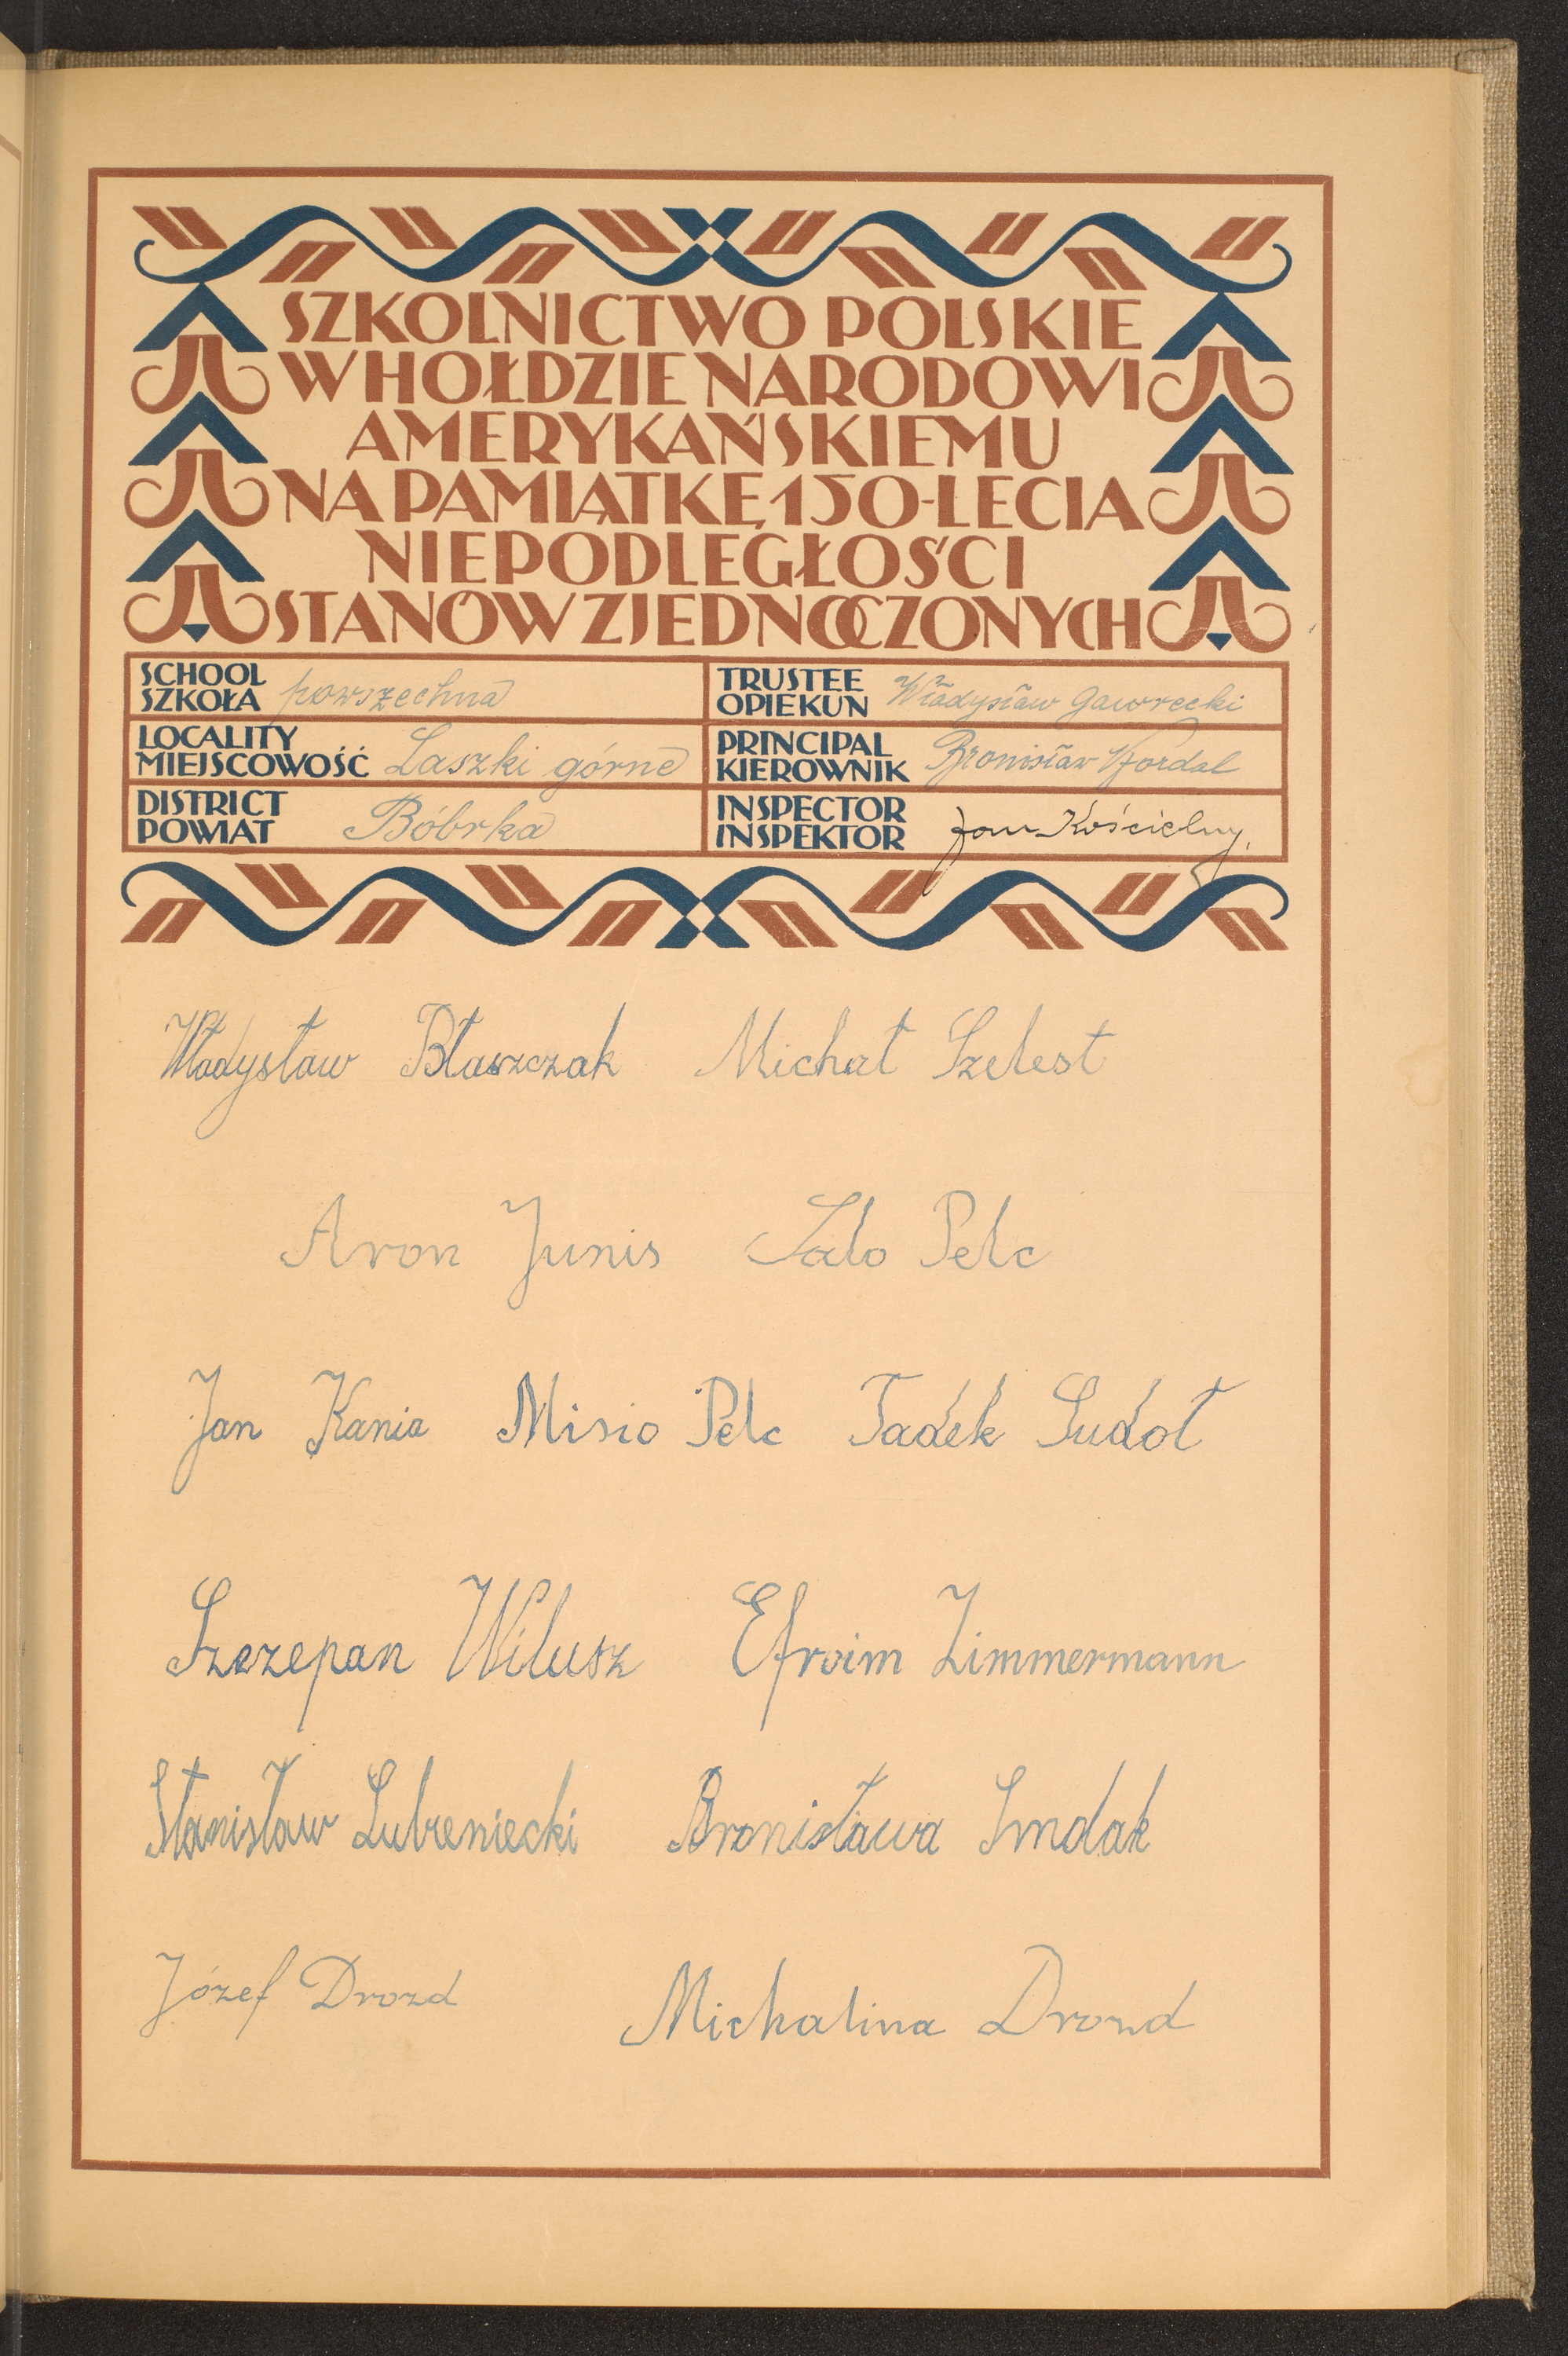 SZKOLNICTWO POLSKIE
W HOŁDZIE NARODOWI
AMERYKAŃSKIEMU
NA PAMIĄTKĘ 150-LECIA
NIEPODLEGŁOŚCI
STANÓW ZJEDNOCZONYCH
SCHOOL
SZKOŁA powszechna
TRUSTEE
OPIEKUN Władysław Gawrecki
LOCALITY
MIEJSCOWOŚĆ Laszki górne
PRINCIPAL
KIEROWNIK Bronisław
DISTRICT
POWIAT Bóbrka
INSPECTOR
INSPEKTOR Jan Kościelny.
Władysław Błaszczak Michał Szelest
Aron Junis Salo Pelc
Jan Kania Misio Pelc Tadek Sudoł
Szczepan Wilusz Efroim Zimmermann
Stanisław Lubieniecki Bronisława Smolak
Józef Drozd Michalina Drozd